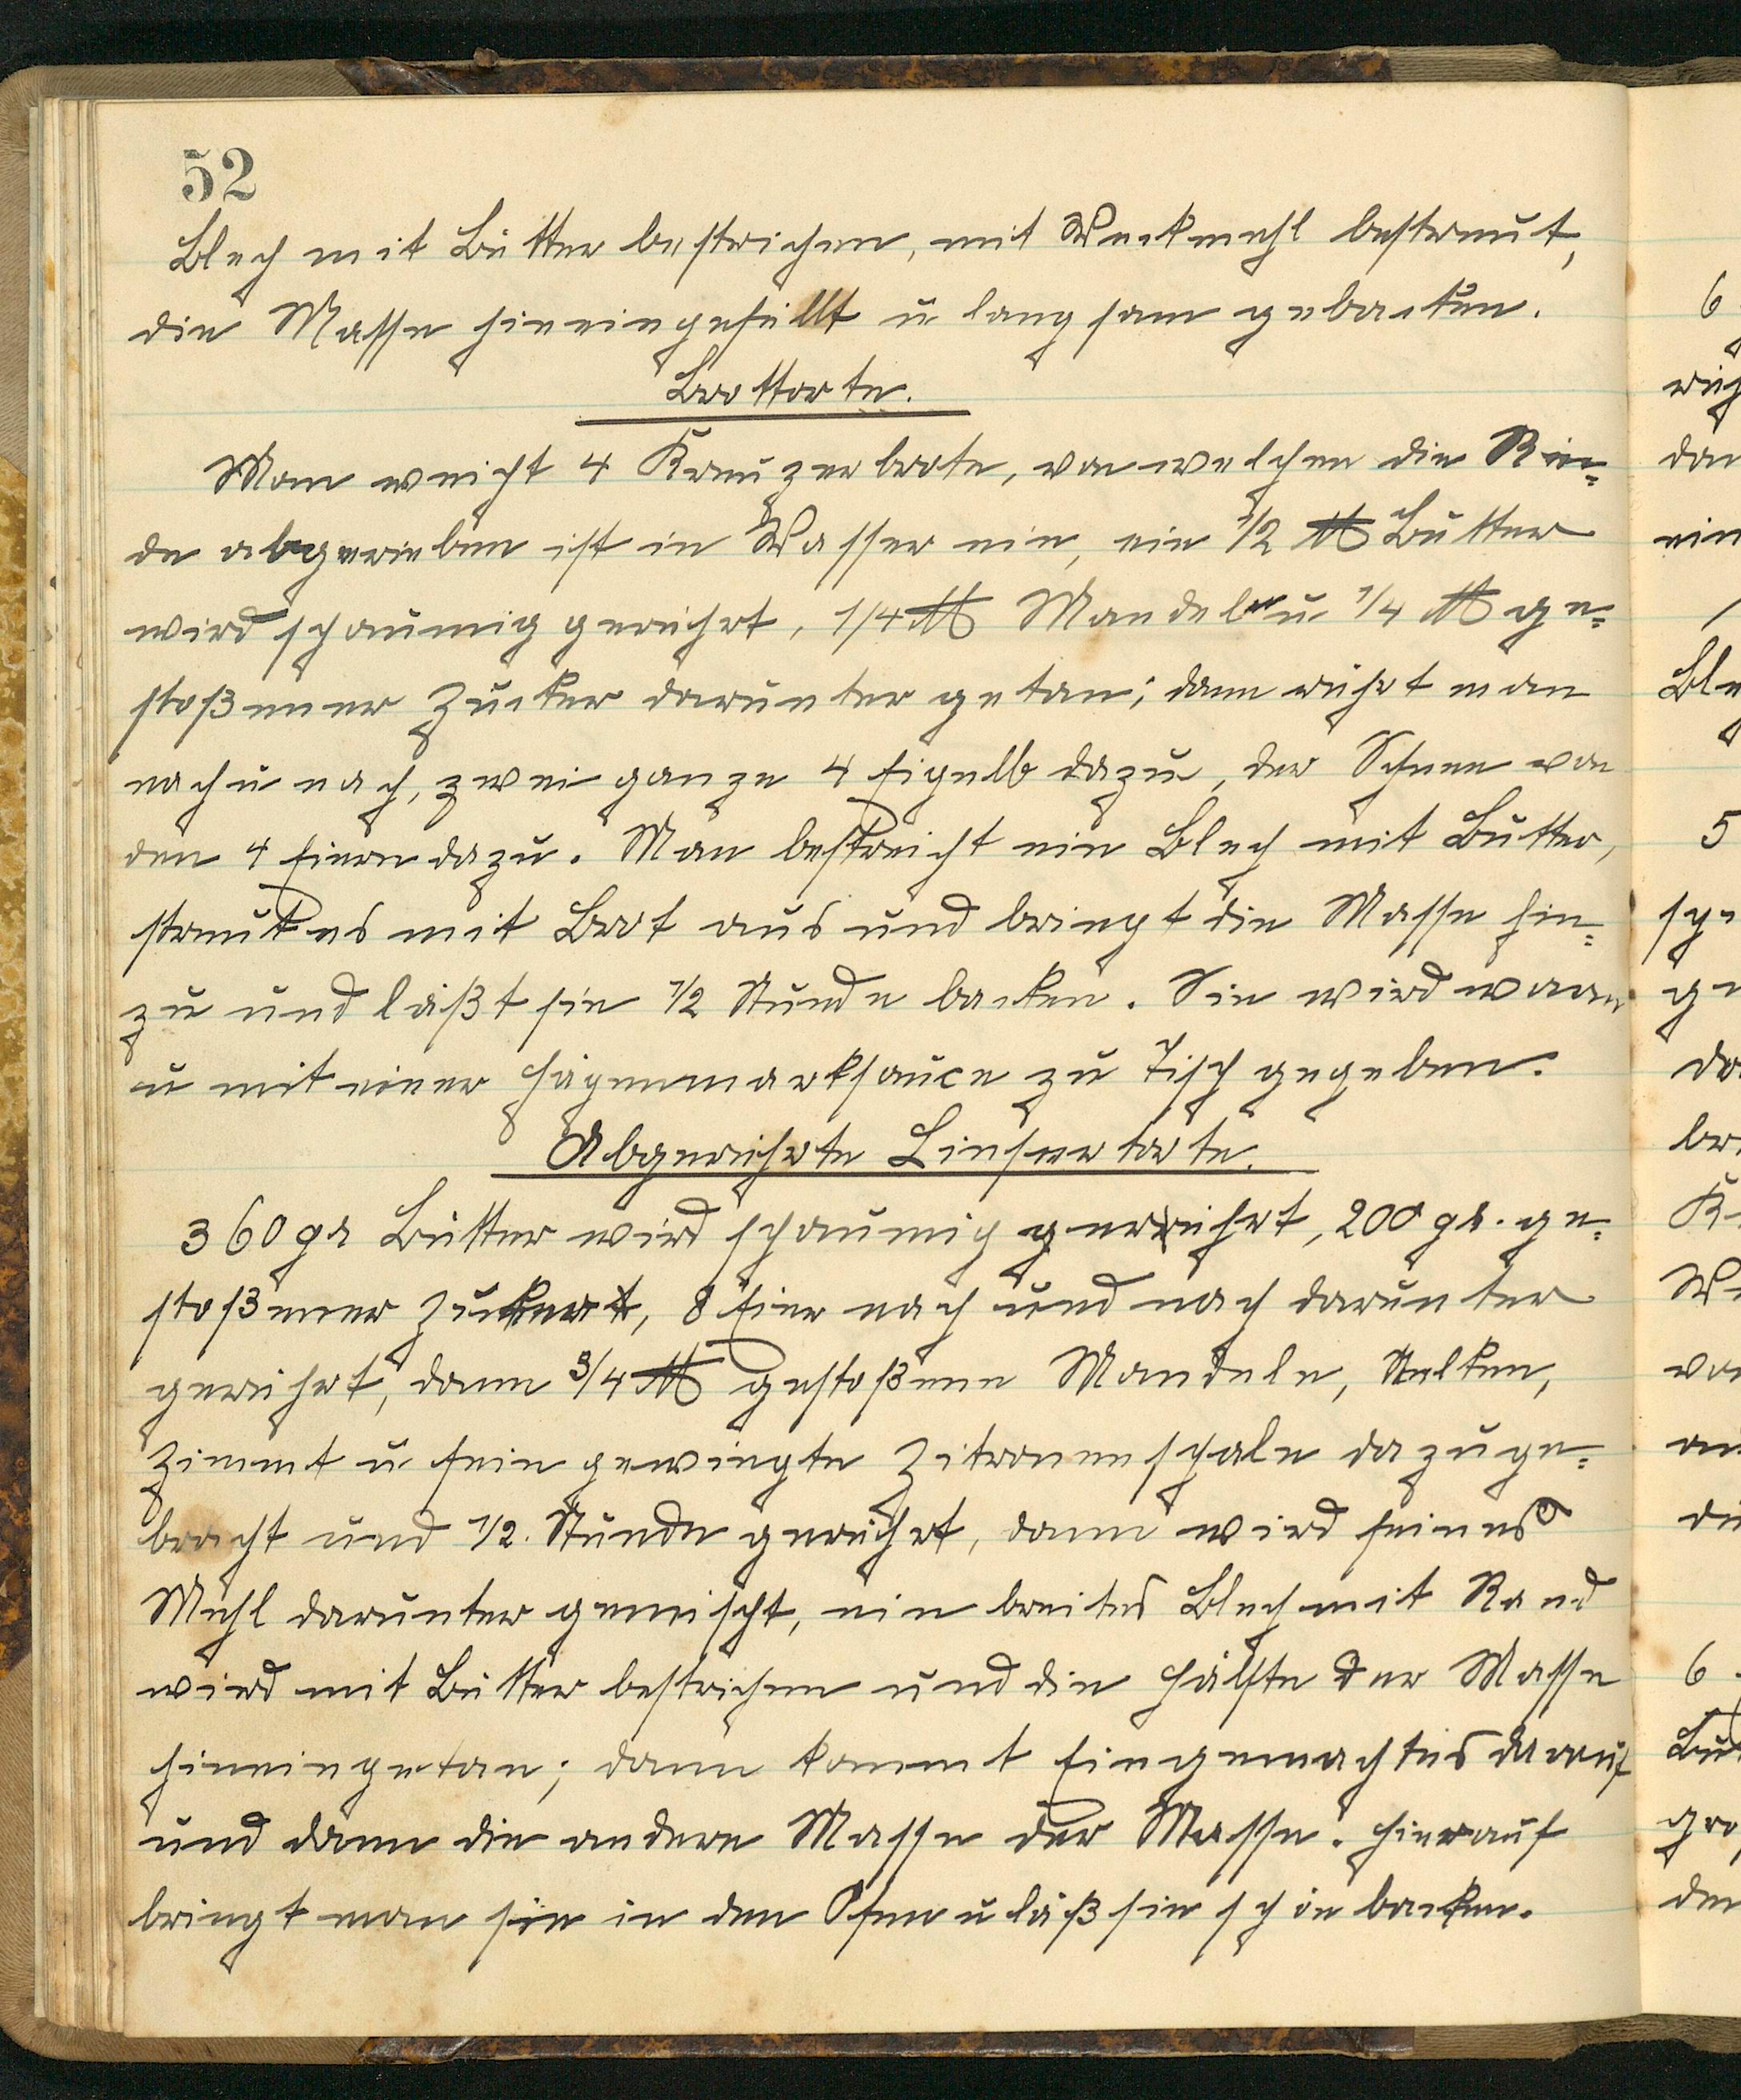 52
Blech mit Butter bestrichen, mit Weckmehl bestreut,
die Masse hineingefüllt u langsam gebacken.
Brottorte.
Man weicht 4 Kreuzerbrote, von welchen die Rin=
de abgerieben ist in Wasser ein, ein 1/2 ℔ Butter
wird schaumig gerührt, 1/4 ℔ Mandeln u. 1/4 ℔ ge=
stoßener Zucker darunter getan; dann rührt man
nach u nach, zwei ganze 4 Eigelb dazu, der Schnee von
den 4 Eiern dazu. Man bestreicht ein Blech mit Butter,
streut es mit Brot aus und bringt die Masse hin=
zu und läßt sie 1/2 Stunde backen. Sie wird warm
u mit einer Hägenmarksauce zu Tisch gegeben.
Abgerührte Linsertorte.
360 gr Butter wird schaumig gerührt, 200 gr. ge=
stoßener Zucker, 8 Eier nach und nach darunter
gerührt, dann 3/4 ℔ gestoßene Mandeln, Nelken,
Zimmt u. fein gewiegte Zitronenschale dazuge=
bracht und 1/2. Stunde gerührt, dann wird feines
Mehl darunter gemischt, ein breites Blech mit Rand
wird mit Butter bestrichen und die Hälfte der Masse
hineingetan; dann kommt Eingemachtes darauf
und dann die andere Masse der Masse. Hierauf
bringt man sie in den Ofen u läß sie schön backen.